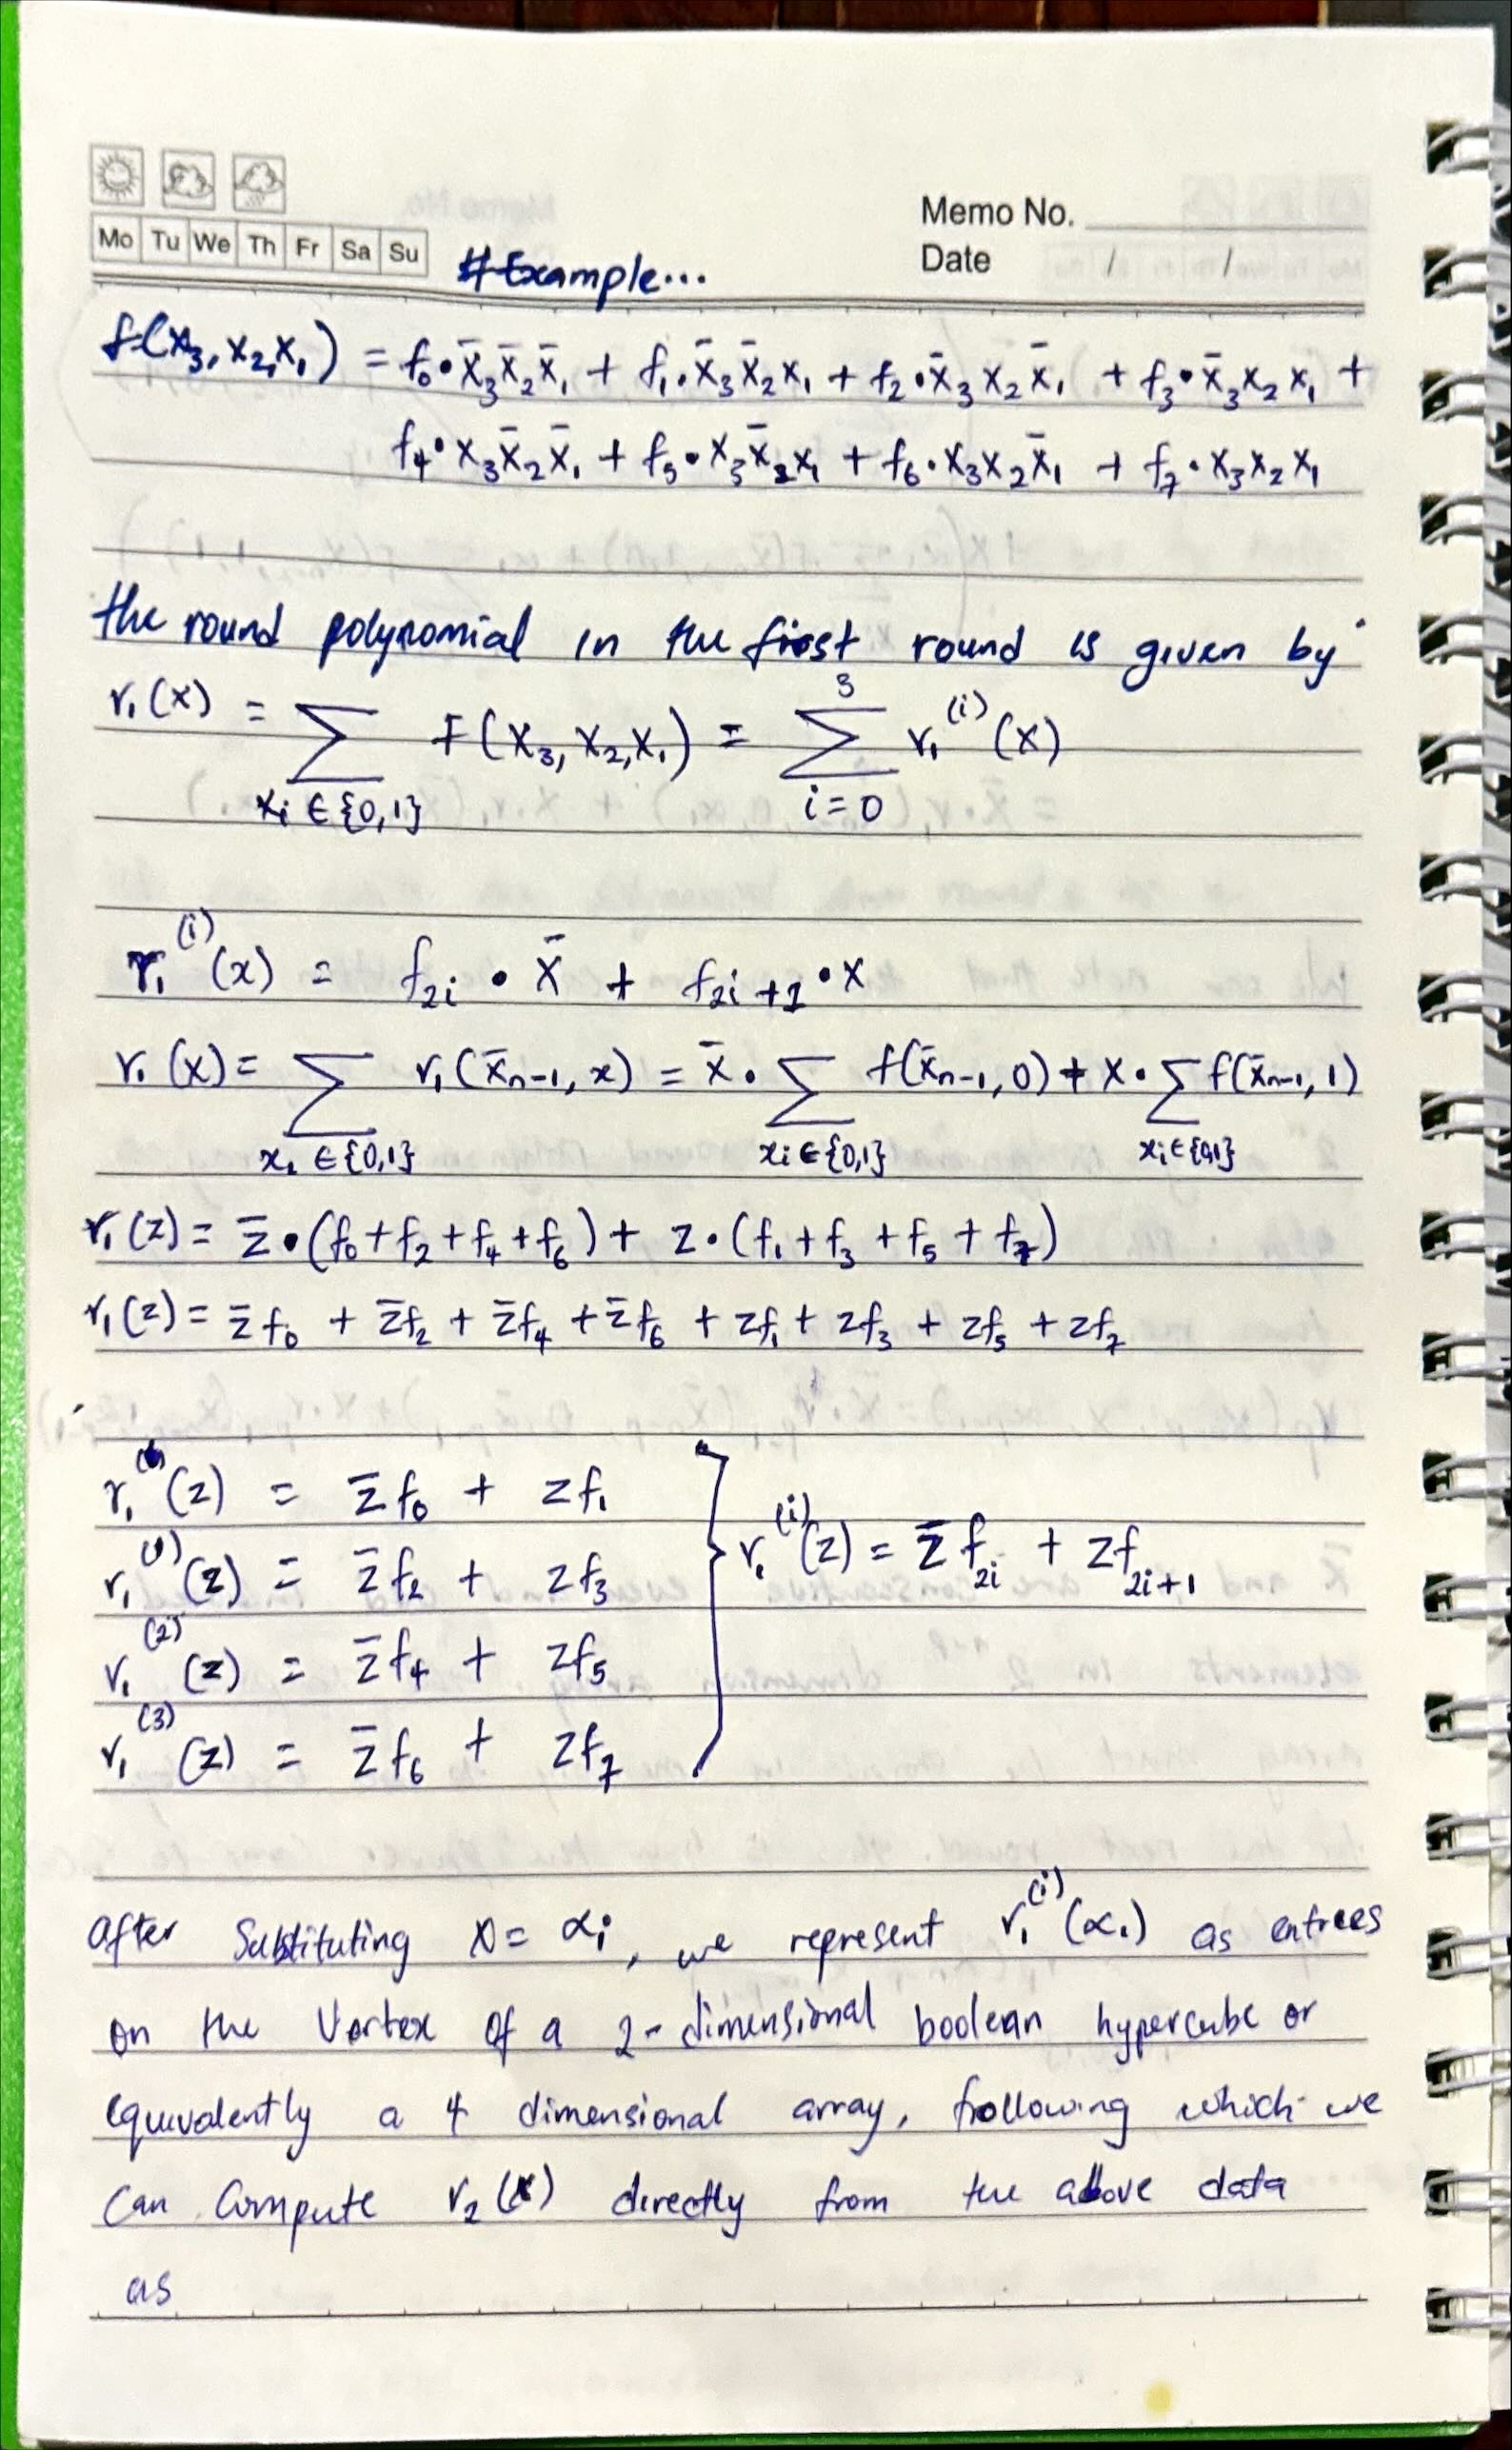 Memo No.
Mo Tu We Th Fr Sa Su
Date / /
#Example...
f(x₃, x₂, x₁) = f₀•x̄₃x̄₂x̄₁ + f₁•x̄₃x̄₂x₁ + f₂•x̄₃x₂x̄₁ + f₃•x̄₃x₂x₁ +
f₄•x₃x̄₂x̄₁ + f₅•x₃x̄₂x₁ + f₆•x₃x₂x̄₁ + f₇•x₃x₂x₁
the round polynomial in the first round is given by
r₁(x) = ∑ F(x₃, x₂, x₁) = ∑ r₁⁽ⁱ⁾(x)
xᵢ ∈ {0,1} i=0 3
r₁⁽ⁱ⁾(x) = f₂ᵢ • x̄ + f₂ᵢ₊₁ • x
r₁(x) = ∑ r₁(x̄ₙ₋₁, x) = x̄ • ∑ f(x̄ₙ₋₁, 0) + x • ∑ f(x̄ₙ₋₁, 1)
xᵢ ∈ {0,1} xᵢ ∈ {0,1} xᵢ ∈ {0,1}
r₁(z) = z̄•(f₀+f₂+f₄+f₆) + z•(f₁+f₃+f₅+f₇)
r₁(z) = z̄f₀ + z̄f₂ + z̄f₄ + z̄f₆ + zf₁ + zf₃ + zf₅ + zf₇
r₁⁽⁰⁾(z) = z̄f₀ + zf₁
r₁⁽¹⁾(z) = z̄f₂ + zf₃
r₁⁽ⁱ⁾(z) = z̄f₂ᵢ + zf₂ᵢ₊₁
r₁⁽²⁾(z) = z̄f₄ + zf₅
r₁⁽³⁾(z) = z̄f₆ + zf₇
After Substituting x = αᵢ, we represent r₁⁽ⁱ⁾(α₁) as entrees
on the Vertex of a 2-dimensional boolean hypercube or
equivalently a 4 dimensional array, following which we
Can Compute r₂(x) directly from the above data
as